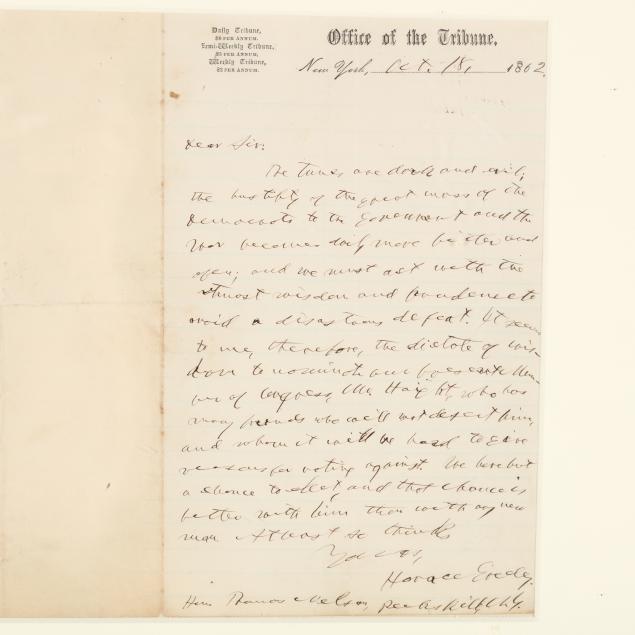 Daily Tribune,
$6 PER ANNUM.
Semi-Weekly Tribune,
$3 PER ANNUM.
Weekly Tribune,
$2 PER ANNUM.
Office of the Tribune,
New York, Oct. 18, 1862.
Dear Sir:
The times are dark and evil;
the hostility of the great mass of the
Democrats to the Government and the
War becomes daily more bitter and
open; and we must act with the
utmost wisdom and prudence to
avoid a disastrous defeat. It seems
to me, therefore, the dictate of wis-
dom to nominate our present Mem-
ber of Congress, Mr. Haight, who has
many friends who will not desert him,
and whom it will be hard to give
reasons for voting against. We have but
a chance to elect, and that chance is
better with him than with any new
man. At least so thinks
Yours,
Horace Greeley.
Hon. Thomas Nelson, Peekskill, N.Y.